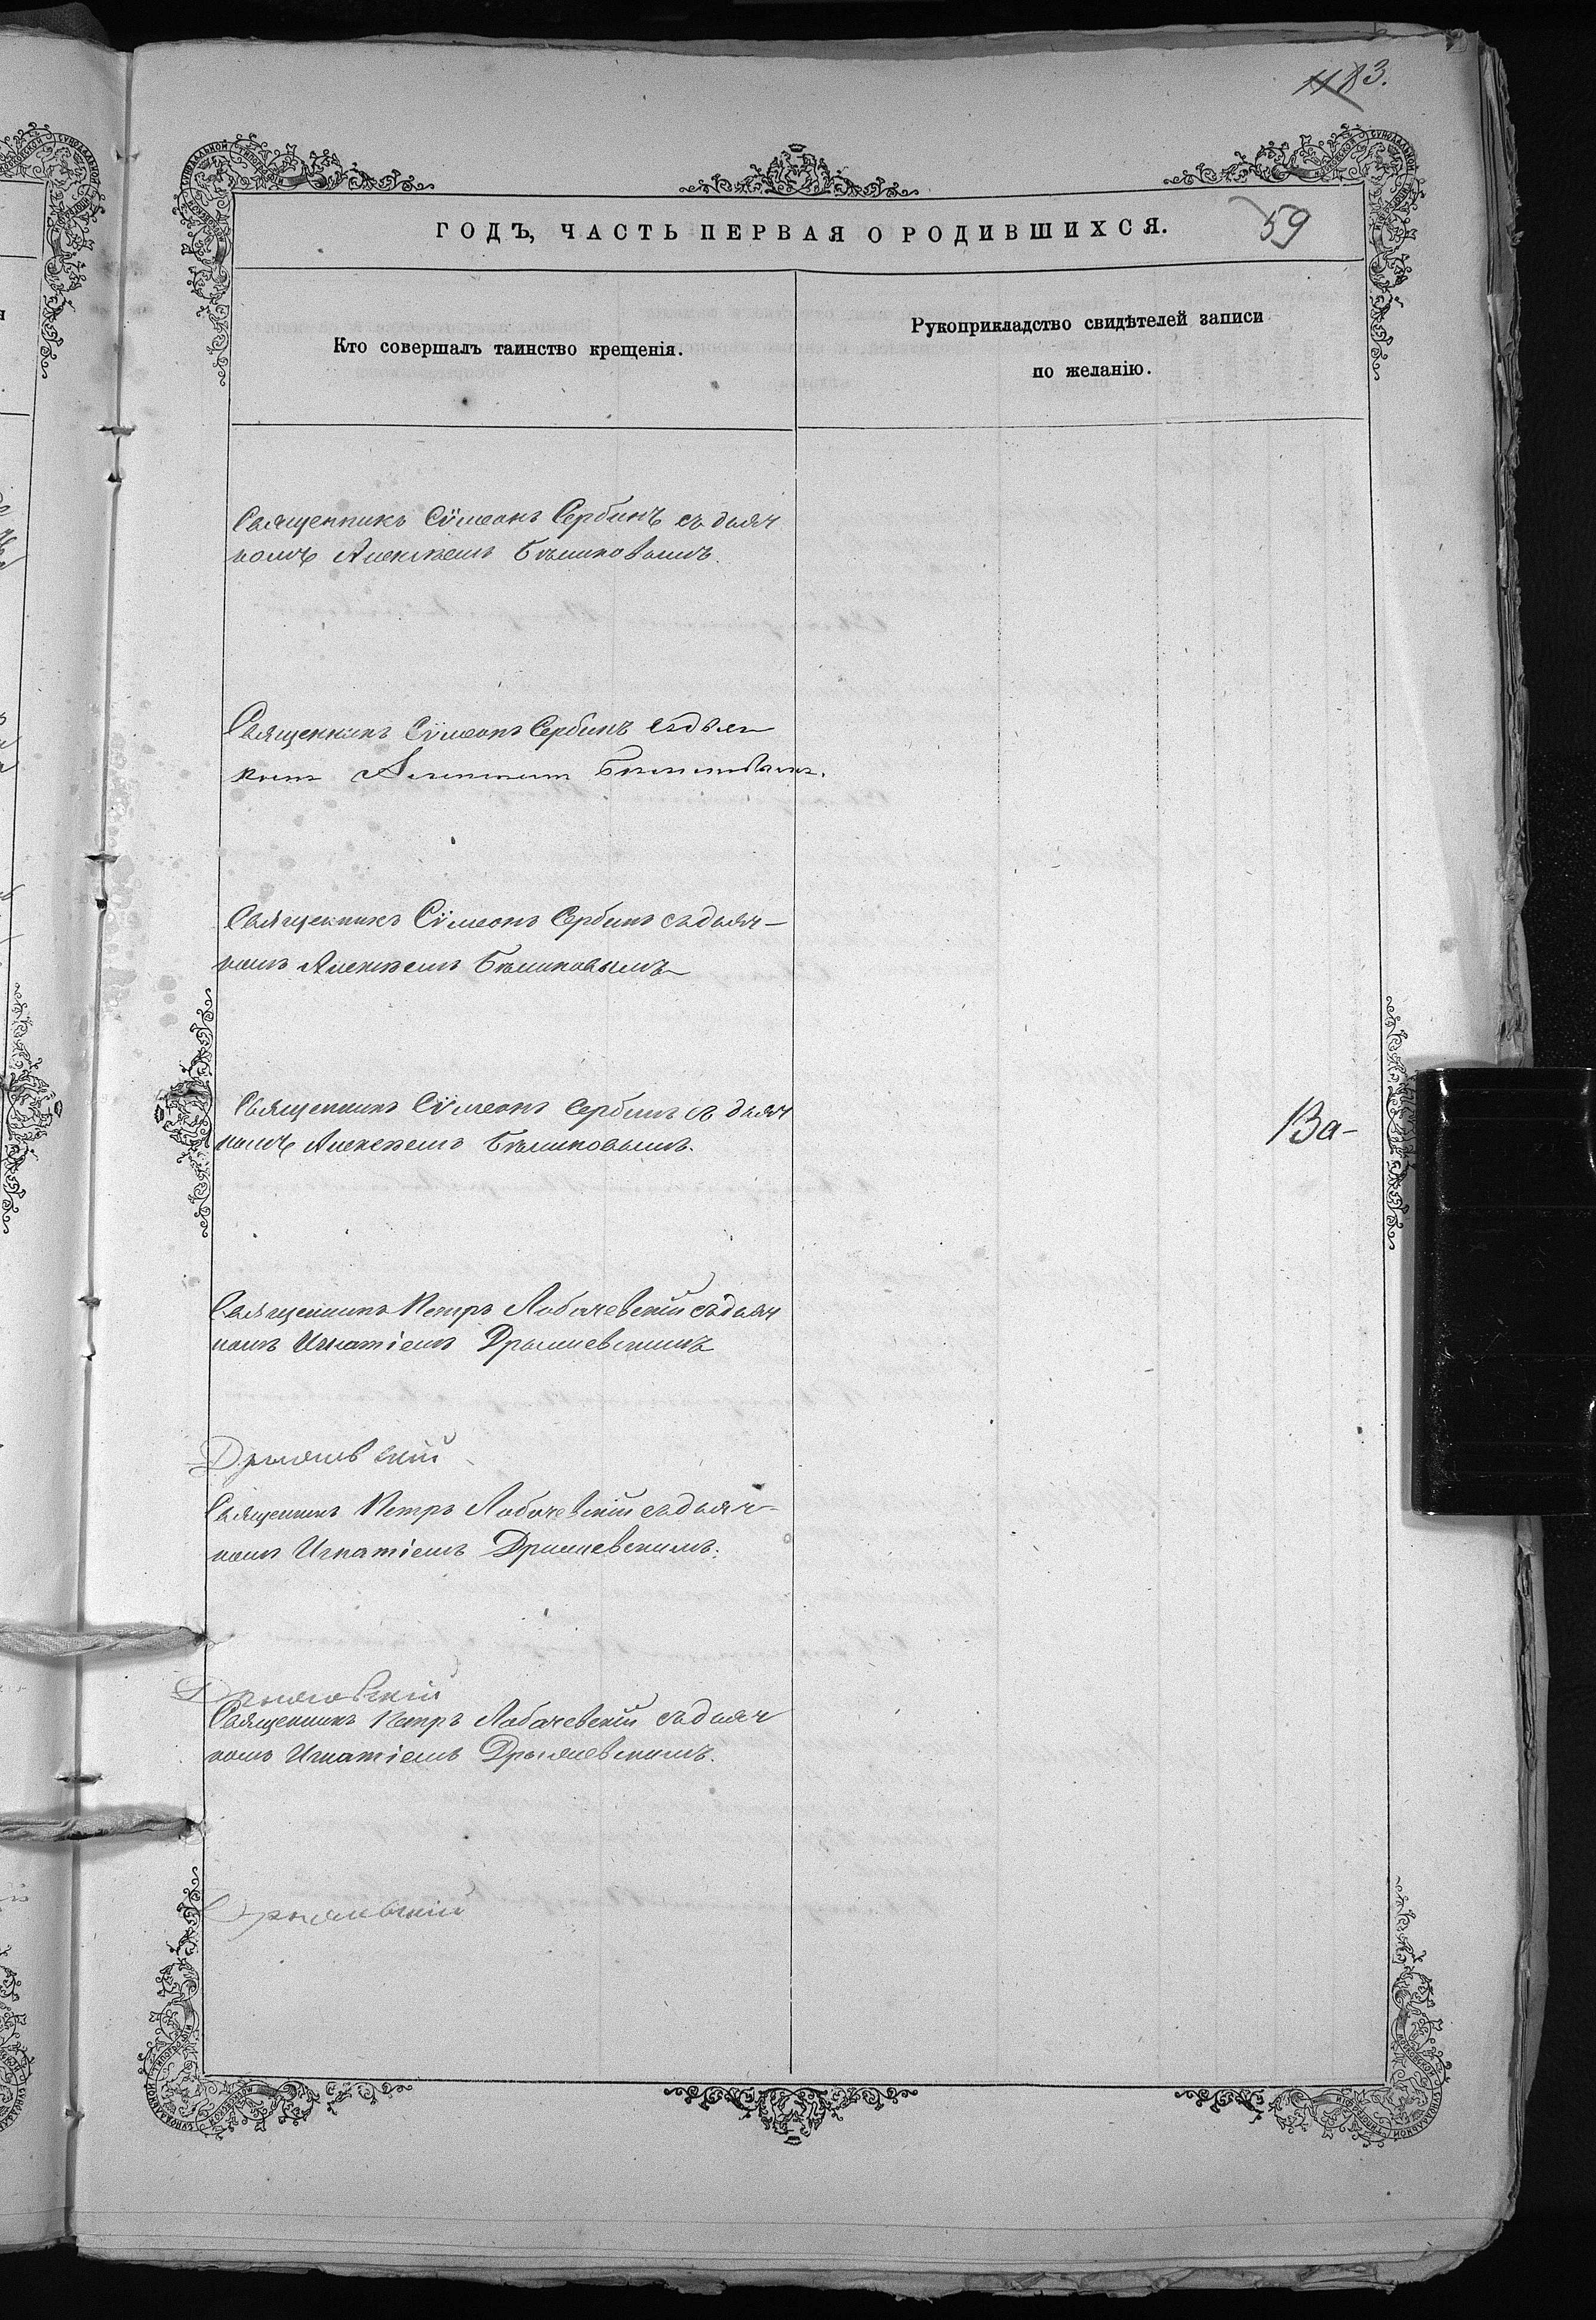 1183.
ГОДЪ, ЧАСТЬ ПЕРВАЯ О РОДИВШИХСЯ.
59
Кто совершалъ таинство крещенія.
Рукоприкладство свидѣтелей записи
по желанію.
Священникъ Сѵмеонъ Сербинъ съ дьяч
комъ Алексѣемъ Бѣликовымъ.
Священникъ Сѵмеонъ Сербинъ съ дьяч
комъ Алексѣемъ Бѣликовымъ.
Священникъ Сѵмеонъ Сербинъ съ дьяч-
комъ Алексѣемъ Бѣликовымъ
Священникъ Сѵмеонъ Сербинъ съ дьяч
комъ Алексѣемъ Бѣликовымъ.
Ва-
Священникъ Петръ Лобачевскій съ дьяч
комъ Игнатіемъ
Священникъ Петръ Лобачевскій съ дьяч-
комъ Игнатіемъ
Священникъ Петръ Лобачевскій съ дьяч
комъ Игнатіемъ